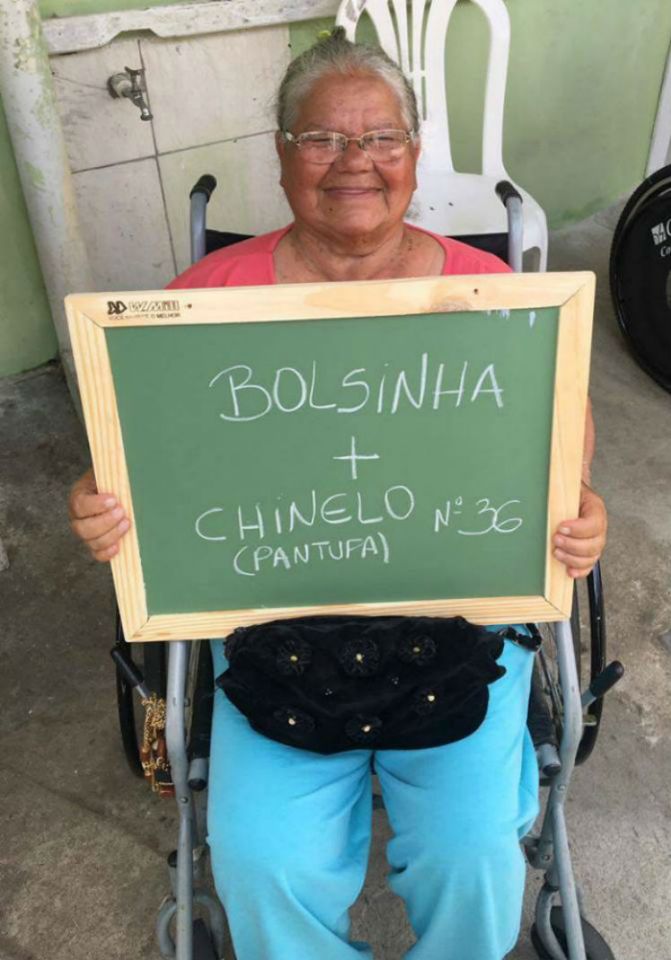 WMill
BOLSINHA
+
CHINELO Nº 36
(PANTUFA)